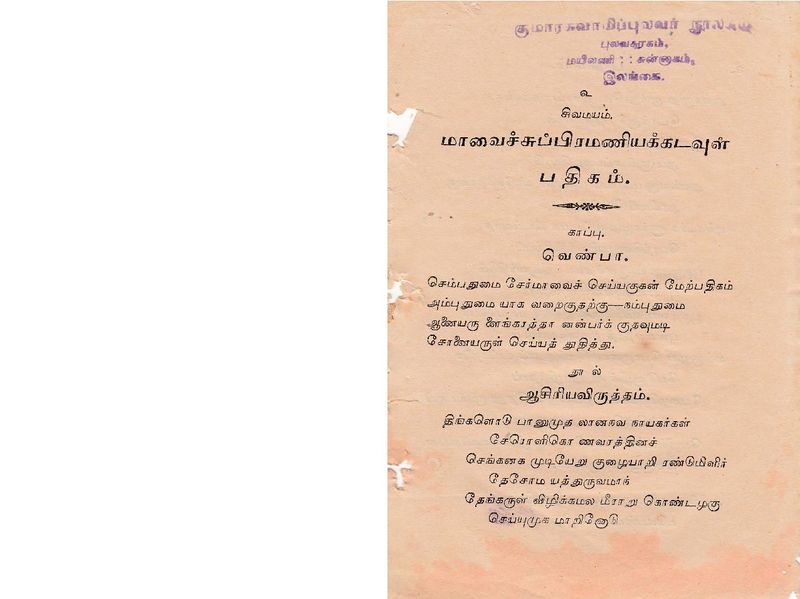 குமாரசுவாமிப்புலவர்
புலவரகம்,
மயிலணி :: சுன்னாகம்,
இலங்கை.
உ
சிவமயம்.
மாவைச்சுப்பிரமணியக்கடவுள்
பதிகம்.
காப்பு.
வெண்பா.
செம்பதுமை சேர்மாவைச் செய்யகுகன் மேற்பதிகம்
அம்புதுமை யாக வறைகுதற்கு—நம்புதுமை
ஆணையரு ளைங்கரத்தா னன்பர்க் குதவுமடி
சோணையருள் செய்யத் துதித்து.
நூல்
ஆசிரியவிருத்தம்.
திங்களொடு பானுமுத லானநவ நாயகர்கள்
சேரொளிகொ ணவரத்தினச்
செங்கனக முடியேறு குழையாறி ரண்டுமிளிர்
தேசோம யத்துருவமாந்
தேங்கருள் விழிக்கமல மீராறு கொண்டழகு
செய்யுமுக மாறினோடு